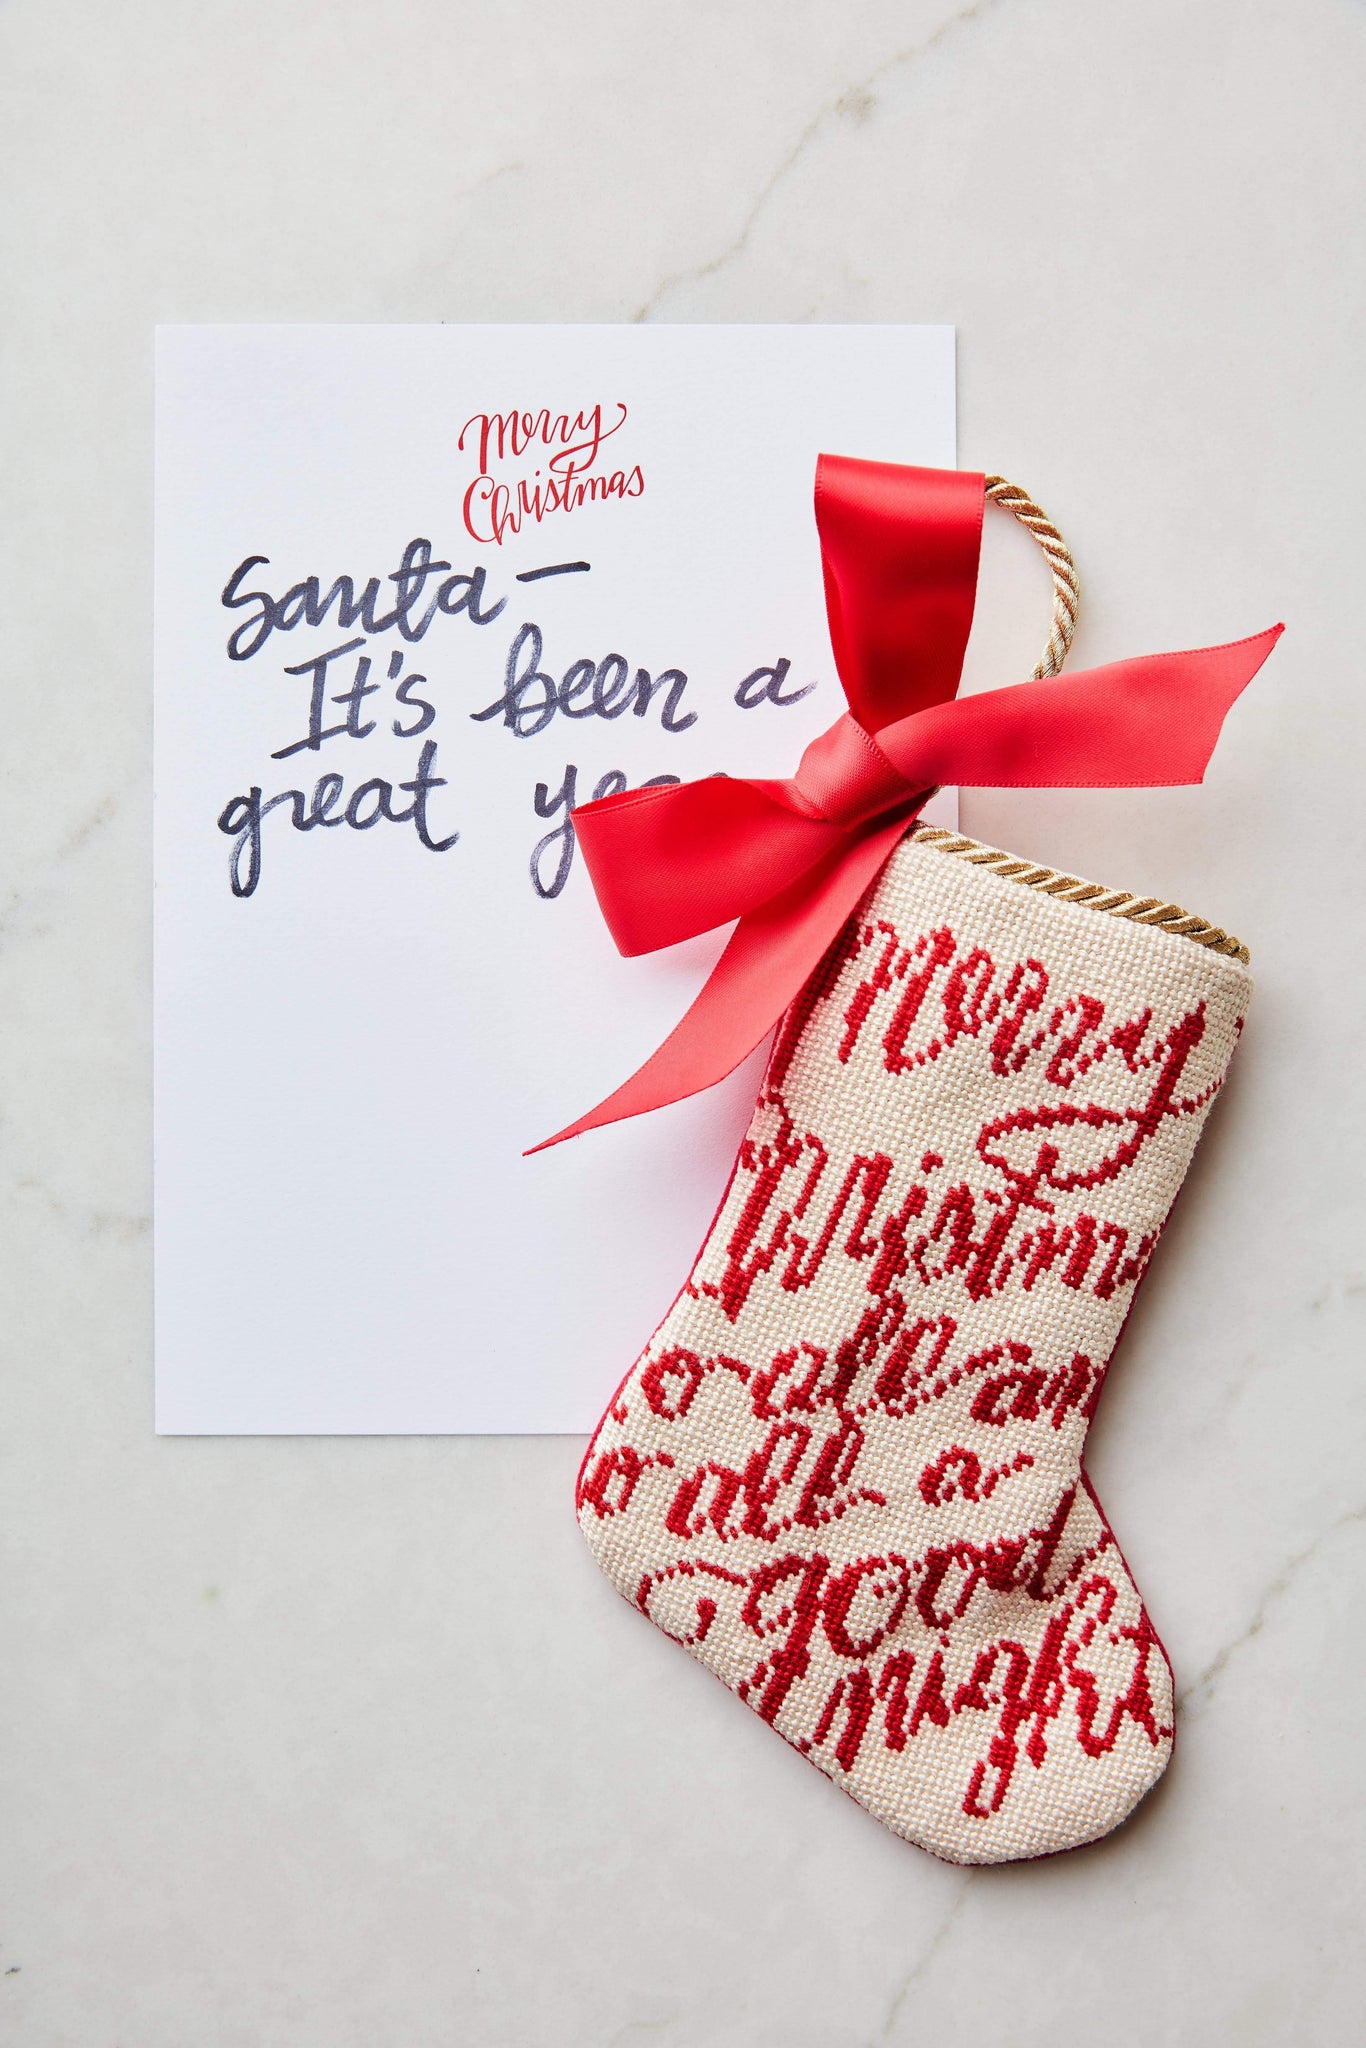 Merry
Christmas
Santa—
It's been a
great yea
Merry
hristm
o all, an
o all a
good
night